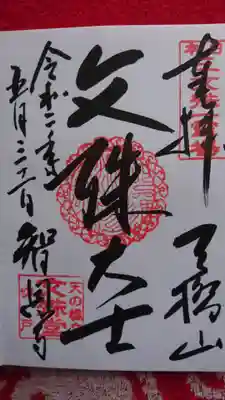 奉拝
天橋山
文殊大士
令和二年
五月三十一日
智恩寺
天の橋立
文殊堂